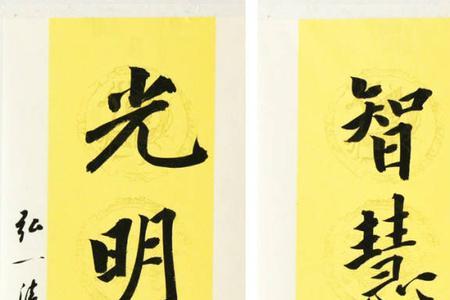 智慧
光明
弘一